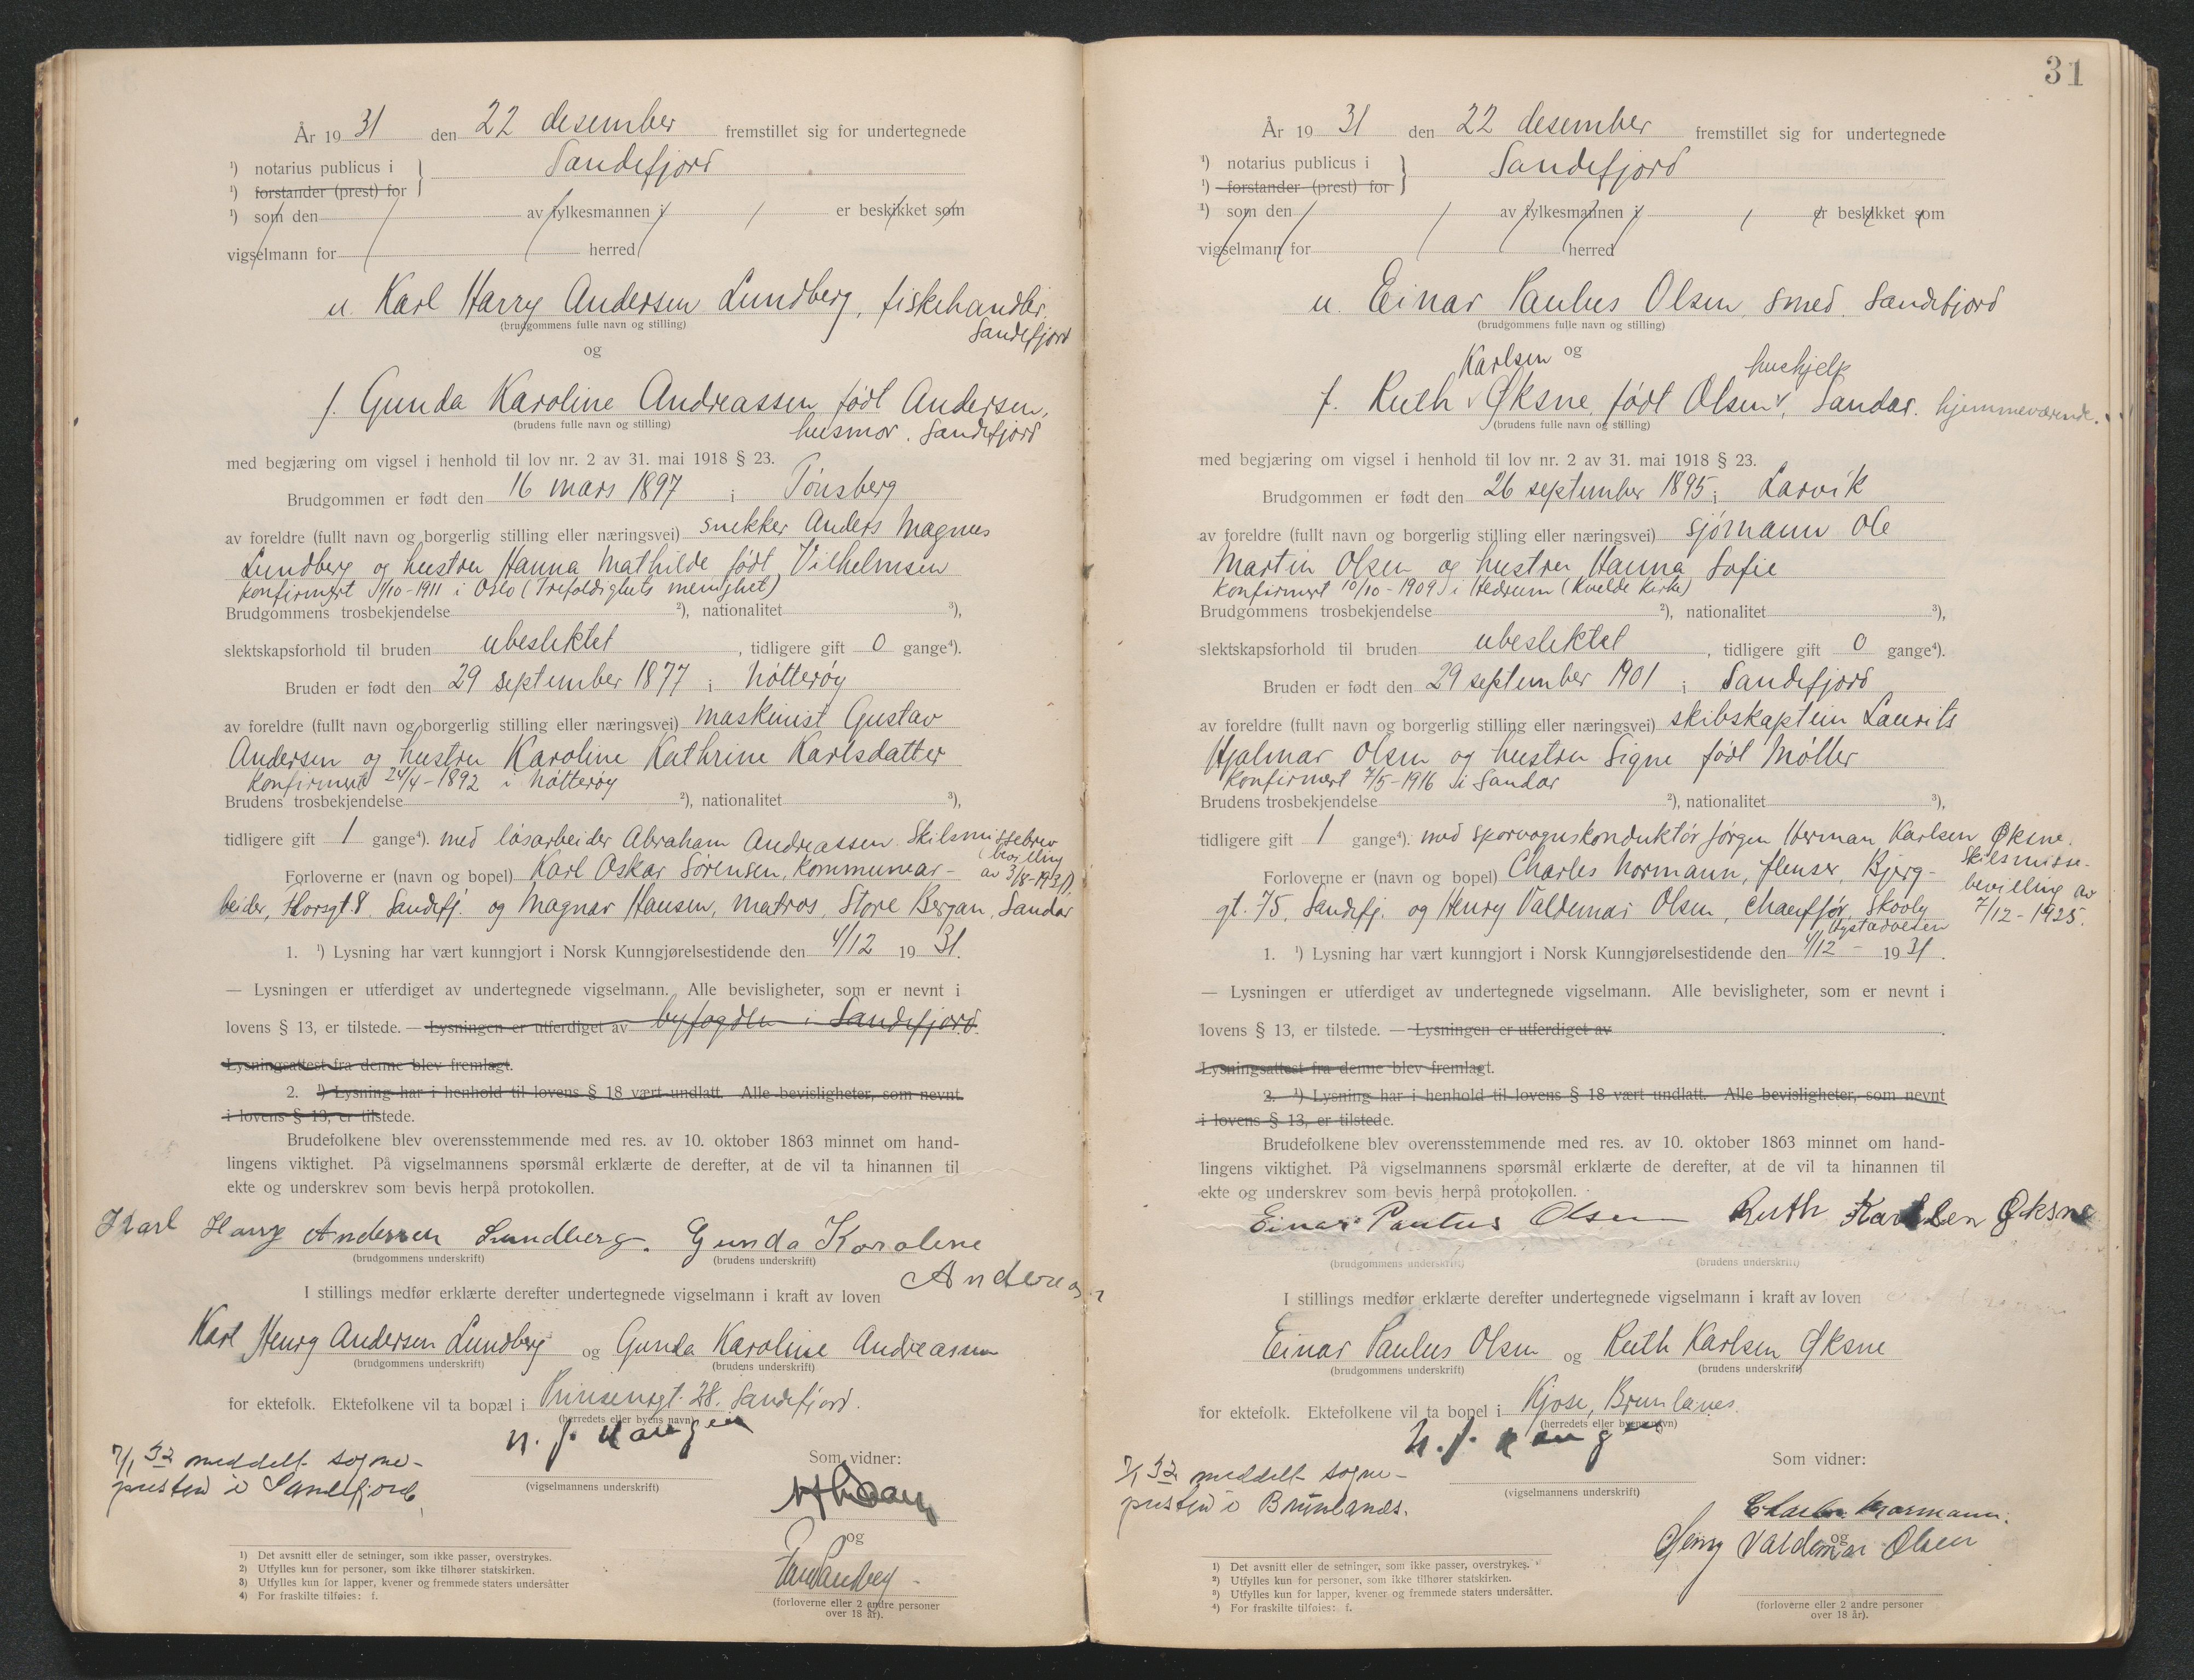 År 19 31 den 22 desember fremstillet sig for undertegnede
¹) notarius publicus i } Sandefjord
¹) forstander (prest) for
¹) som den av fylkesmannen i er beskikket som
vigselmann for herred
u. Karl Harry Andersen Lundberg, fiskehandler.
Sandefjord
(brudgommens fulle navn og stilling)
og
f. Gunda Karoline Andreassen født Andersen,
husmor. Sandefjord
(brudens fulle navn og stilling)
med begjæring om vigsel i henhold til lov nr. 2 av 31. mai 1918 § 23.
Brudgommen er født den 16 mars 1897 i Tønsberg
av foreldre (fullt navn og borgerlig stilling eller næringsvei) snekker Anders Magnus
Lundberg og hustru Hanna Mathilde født Vilhelmsen
konfirmert 1/10-1911 i Oslo (Trefoldighets menighet)
Brudgommens trosbekjendelse ²), nationalitet ³),
slektskapsforhold til bruden ubeslektet, tidligere gift 0 gange⁴).
Bruden er født den 29 september 1877 i Nøtterøy
av foreldre (fullt navn og borgerlig stilling eller næringsvei) maskinist Gustav
Andersen og hustru Karoline Kathrine Karlsdatter
konfirmert 24/4-1892 i Nøtterøy
Brudens trosbekjendelse ²), nationalitet ³),
tidligere gift 1 gange⁴). med løsarbeider Abraham Andreassen. Skilsmissebrev
(bevilling
av 3/8-1931).
Forloverne er (navn og bopel) Karl Oskar Sørensen, kommunear-
beider, Thorsgt. 8. Sandefj. og Magnar Hansen, matros, Store Bergan, Sandar
1. ¹) Lysning har vært kunngjort i Norsk Kunngjørelsestidende den 4/12 19 31.
— Lysningen er utferdiget av undertegnede vigselmann. Alle bevisligheter, som er nevnt i
lovens § 13, er tilstede. — Lysningen er utferdiget av byfogden i Sandefjord.
Lysningsattest fra denne blev fremlagt.
2. ¹) Lysning har i henhold til lovens § 18 vært undlatt. Alle bevisligheter, som nevnt
i lovens § 13, er tilstede.
Brudefolkene blev overensstemmende med res. av 10. oktober 1863 minnet om hand-
lingens viktighet. På vigselmannens spørsmål erklærte de derefter, at de vil ta hinannen til
ekte og underskrev som bevis herpå protokollen.
Karl Harry Andersen Lundberg. Gunda Karoline
Andreassen
(brudgommens underskrift) (brudens underskrift)
I stillings medfør erklærte derefter undertegnede vigselmann i kraft av loven
Karl Henry Andersen Lundberg og Gunda Karoline Andreassen
(brudgommens underskrift) (brudens underskrift)
for ektefolk. Ektefolkene vil ta bopæl i Prinsensgt. 28. Sandefjord.
(herredets eller byens navn)
7/1 32 meddelt sogne-
presten i Sandefjord
(vigselmannens underskrift)
Som vidner:
og
(forloverne eller 2 andre personer
over 18 år).
1) Det avsnitt eller de setninger, som ikke passer, overstrykes.
2) Utfylles kun for personer, som ikke tilhører statskirken.
3) Utfylles kun for lapper, kvener og fremmede staters undersåtter
4) For fraskilte tilføies: f.
31
År 19 31 den 22 desember fremstillet sig for undertegnede
¹) notarius publicus i } Sandefjord
¹) forstander (prest) for
¹) som den av fylkesmannen i er beskikket som
vigselmann for herred
u. Einar Paulus Olsen, smed. Sandefjord
(brudgommens fulle navn og stilling)
og
Karlsen hushjelp
f. Ruth Øksne, født Olsen, Sandar. hjemmeværende.
(brudens fulle navn og stilling)
med begjæring om vigsel i henhold til lov nr. 2 av 31. mai 1918 § 23.
Brudgommen er født den 26 september 1895 i Larvik
av foreldre (fullt navn og borgerlig stilling eller næringsvei) sjømann Ole
Martin Olsen og hustru Hanna Sofie
konfirmert 10/10-1909 i Hedrum (Kvelde kirke)
Brudgommens trosbekjendelse ²), nationalitet ³),
slektskapsforhold til bruden ubeslektet, tidligere gift 0 gange⁴).
Bruden er født den 29 september 1901 i Sandefjord
av foreldre (fullt navn og borgerlig stilling eller næringsvei) skibskaptein Laurits
Hjalmar Olsen og hustru Signe født Møller
konfirmert 7/5-1916 i Sandar
Brudens trosbekjendelse ²), nationalitet ³),
tidligere gift 1 gange⁴). med sporvognskonduktør Jørgen Herman Karlsen Øksne.
Skilsmisse-
bevilling av
7/12-1925.
Forloverne er (navn og bopel) Charles Normann, flenser, Bjerg-
gt. 75, Sandefj. og Henry Valdemar Olsen, chauffør, Skooly
1. ¹) Lysning har vært kunngjort i Norsk Kunngjørelsestidende den 4/12 - 19 31.
— Lysningen er utferdiget av undertegnede vigselmann. Alle bevisligheter, som er nevnt i
lovens § 13, er tilstede. — Lysningen er utferdiget av
Lysningsattest fra denne blev fremlagt.
2. ¹) Lysning har i henhold til lovens § 18 vært undlatt. Alle bevisligheter, som nevnt
i lovens § 13, er tilstede.
Brudefolkene blev overensstemmende med res. av 10. oktober 1863 minnet om hand-
lingens viktighet. På vigselmannens spørsmål erklærte de derefter, at de vil ta hinannen til
ekte og underskrev som bevis herpå protokollen.
Einar Paulus Olsen Ruth Karlsen Øksne
(brudgommens underskrift) (brudens underskrift)
I stillings medfør erklærte derefter undertegnede vigselmann i kraft av loven
Einar Paulus Olsen og Ruth Karlsen Øksne
(brudgommens underskrift) (brudens underskrift)
for ektefolk. Ektefolkene vil ta bopel i Kjose, Brunlanes.
(herredets eller byens navn)
7/1 32 meddelt sogne-
presten i Brunlanes.
(vigselmannens underskrift)
Som vidner:
Charles Normann.
og
Henry Valdemar Olsen
(forloverne eller 2 andre personer
over 18 år).
1) Det avsnitt eller de setninger, som ikke passer, overstrykes.
2) Utfylles kun for personer, som ikke tilhører statskirken.
3) Utfylles kun for lapper, kvener og fremmede staters undersåtter.
4) For fraskilte tilføies: f.